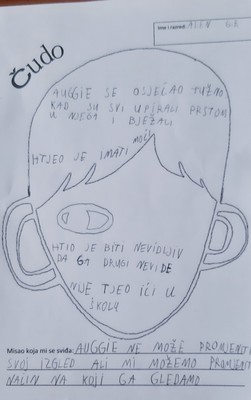 Čudo
Ime i razred:
AUGGIE SE OSJEĆAO TUŽNO
KAD SU SVI UPIRALI PRSTOM
U NJEGA I BJEŽALI
HTJEO JE IMATI MOĆ
HTIO JE BITI NEVIDLJIV
DA GA DRUGI NEVIDE
NIJE TJEO IĆI U
ŠKOLU
Misao koja mi se sviđa: AUGGIE NE MOŽE PROMJENITI
SVOJ IZGLED ALI MI MOŽEMO PROMJENIT
NAČIN NA KOJI GA GLEDAMO